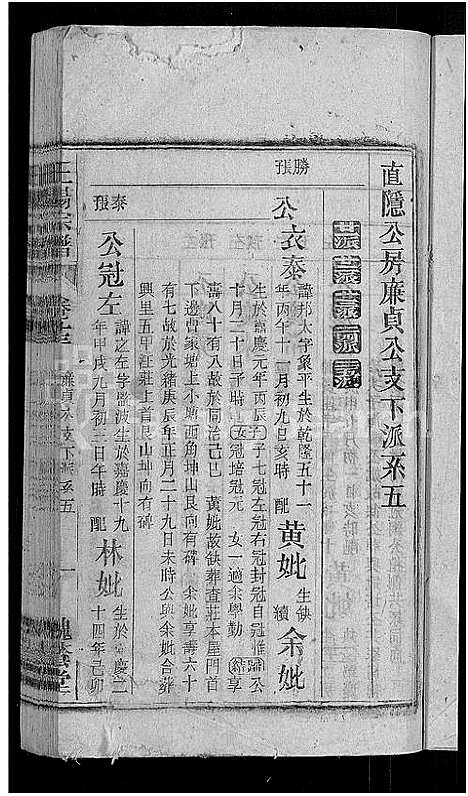 直隱公房廉貞公支下派系五
勝張
公衣泰
諱邦太字象平生於乾隆五十一
年丙午十一月初九日亥時
配
黃妣
生缺
續
余妣
生於嘉慶元年丙辰
十月二十日子時
子七冠左冠右冠封冠自冠惟
公
女
冠培冠元
女一適余學勤
享
壽八十有八故於同治己巳
黃妣故缺葬查莊本屋門首
下邊曹家塘上小塘酉角坤山艮向有碑
余妣享壽六十
有七故於光緒庚辰年正月二十九日未時公與余妣合葬
興里五甲汪莊上首艮山坤向有碑
泰張
公冠左
諱之左字監波生於嘉慶十九
年甲戌九月初三日午時
配
林妣
生於嘉慶二
十四年己卯
宗譜
廉貞公支下派系五
一
堂